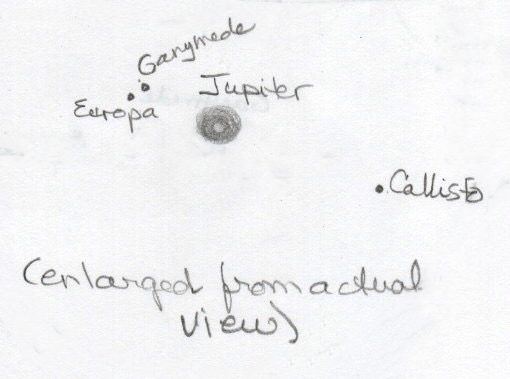 Ganymede
Jupiter
Europa
Callisto
(enlarged from actual
view)